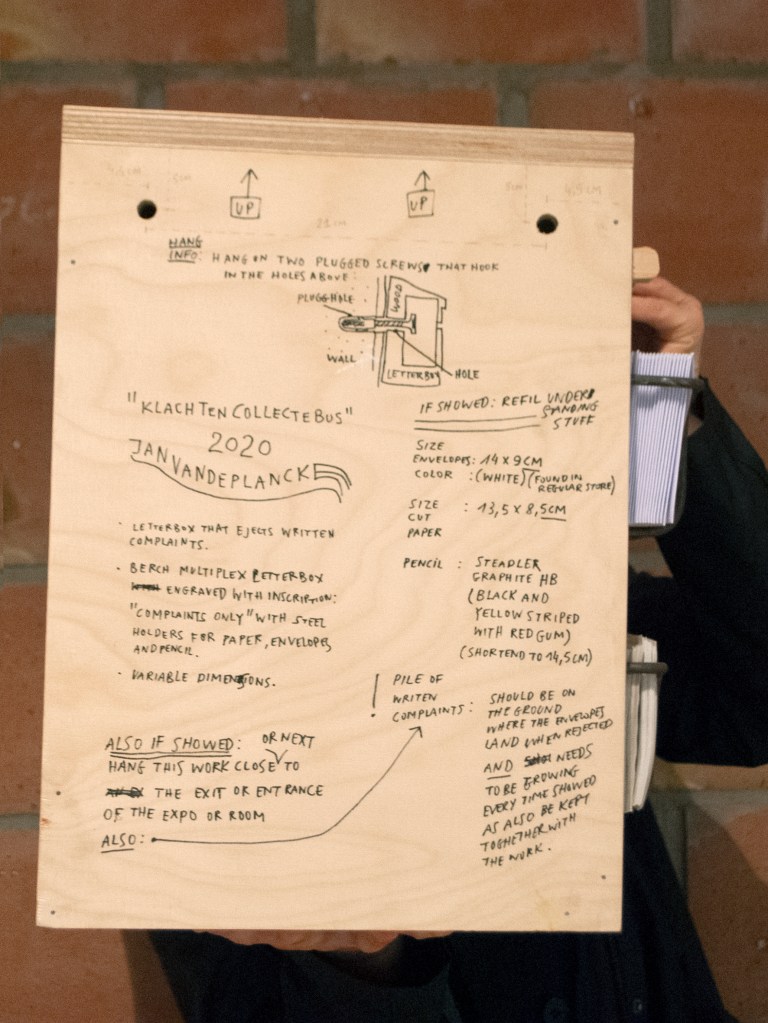 UP
UP
HANG
INFO: HANG ON TWO PLUGGED SCREWS THAT HOOK
IN THE HOLES ABOVE:
PLUGG-HOLE
WOOD
WALL
LETTERBOX
HOLE
"KLACHTENCOLLECTEBUS"
2020
JANVANDEPLANCKE
· LETTERBOX THAT EJECTS WRITTEN
COMPLAINTS.
· BERCH MULTIPLEX LETTERBOX
ENGRAVED WITH INSCRIPTION:
"COMPLAINTS ONLY" WITH STEEL
HOLDERS FOR PAPER, ENVELOPES
AND PENCIL.
· VARIABLE DIMENSIONS.
ALSO IF SHOWED: OR NEXT
HANG THIS WORK CLOSE TO
THE EXIT OR ENTRANCE
OF THE EXPO OR ROOM
ALSO:
IF SHOWED: REFIL UNDER
STANDING
STUFF
SIZE
ENVELOPES: 14 X 9 CM
COLOR : (WHITE) (FOUND IN
REGULAR STORE)
SIZE
CUT : 13,5 X 8,5CM
PAPER
PENCIL : STEADLER
GRAPHITE HB
(BLACK AND
YELLOW STRIPED
WITH RED GUM)
(SHORTEND TO 14,5CM)
! PILE OF
WRITEN
COMPLAINTS: SHOULD BE ON
THE GROUND
WHERE THE ENVELOPES
LAND WHEN REJECTED
AND NEEDS
TO BE GROWING
EVERY TIME SHOWED
AS ALSO BE KEPT
TOGHETHER WITH
THE WORK.